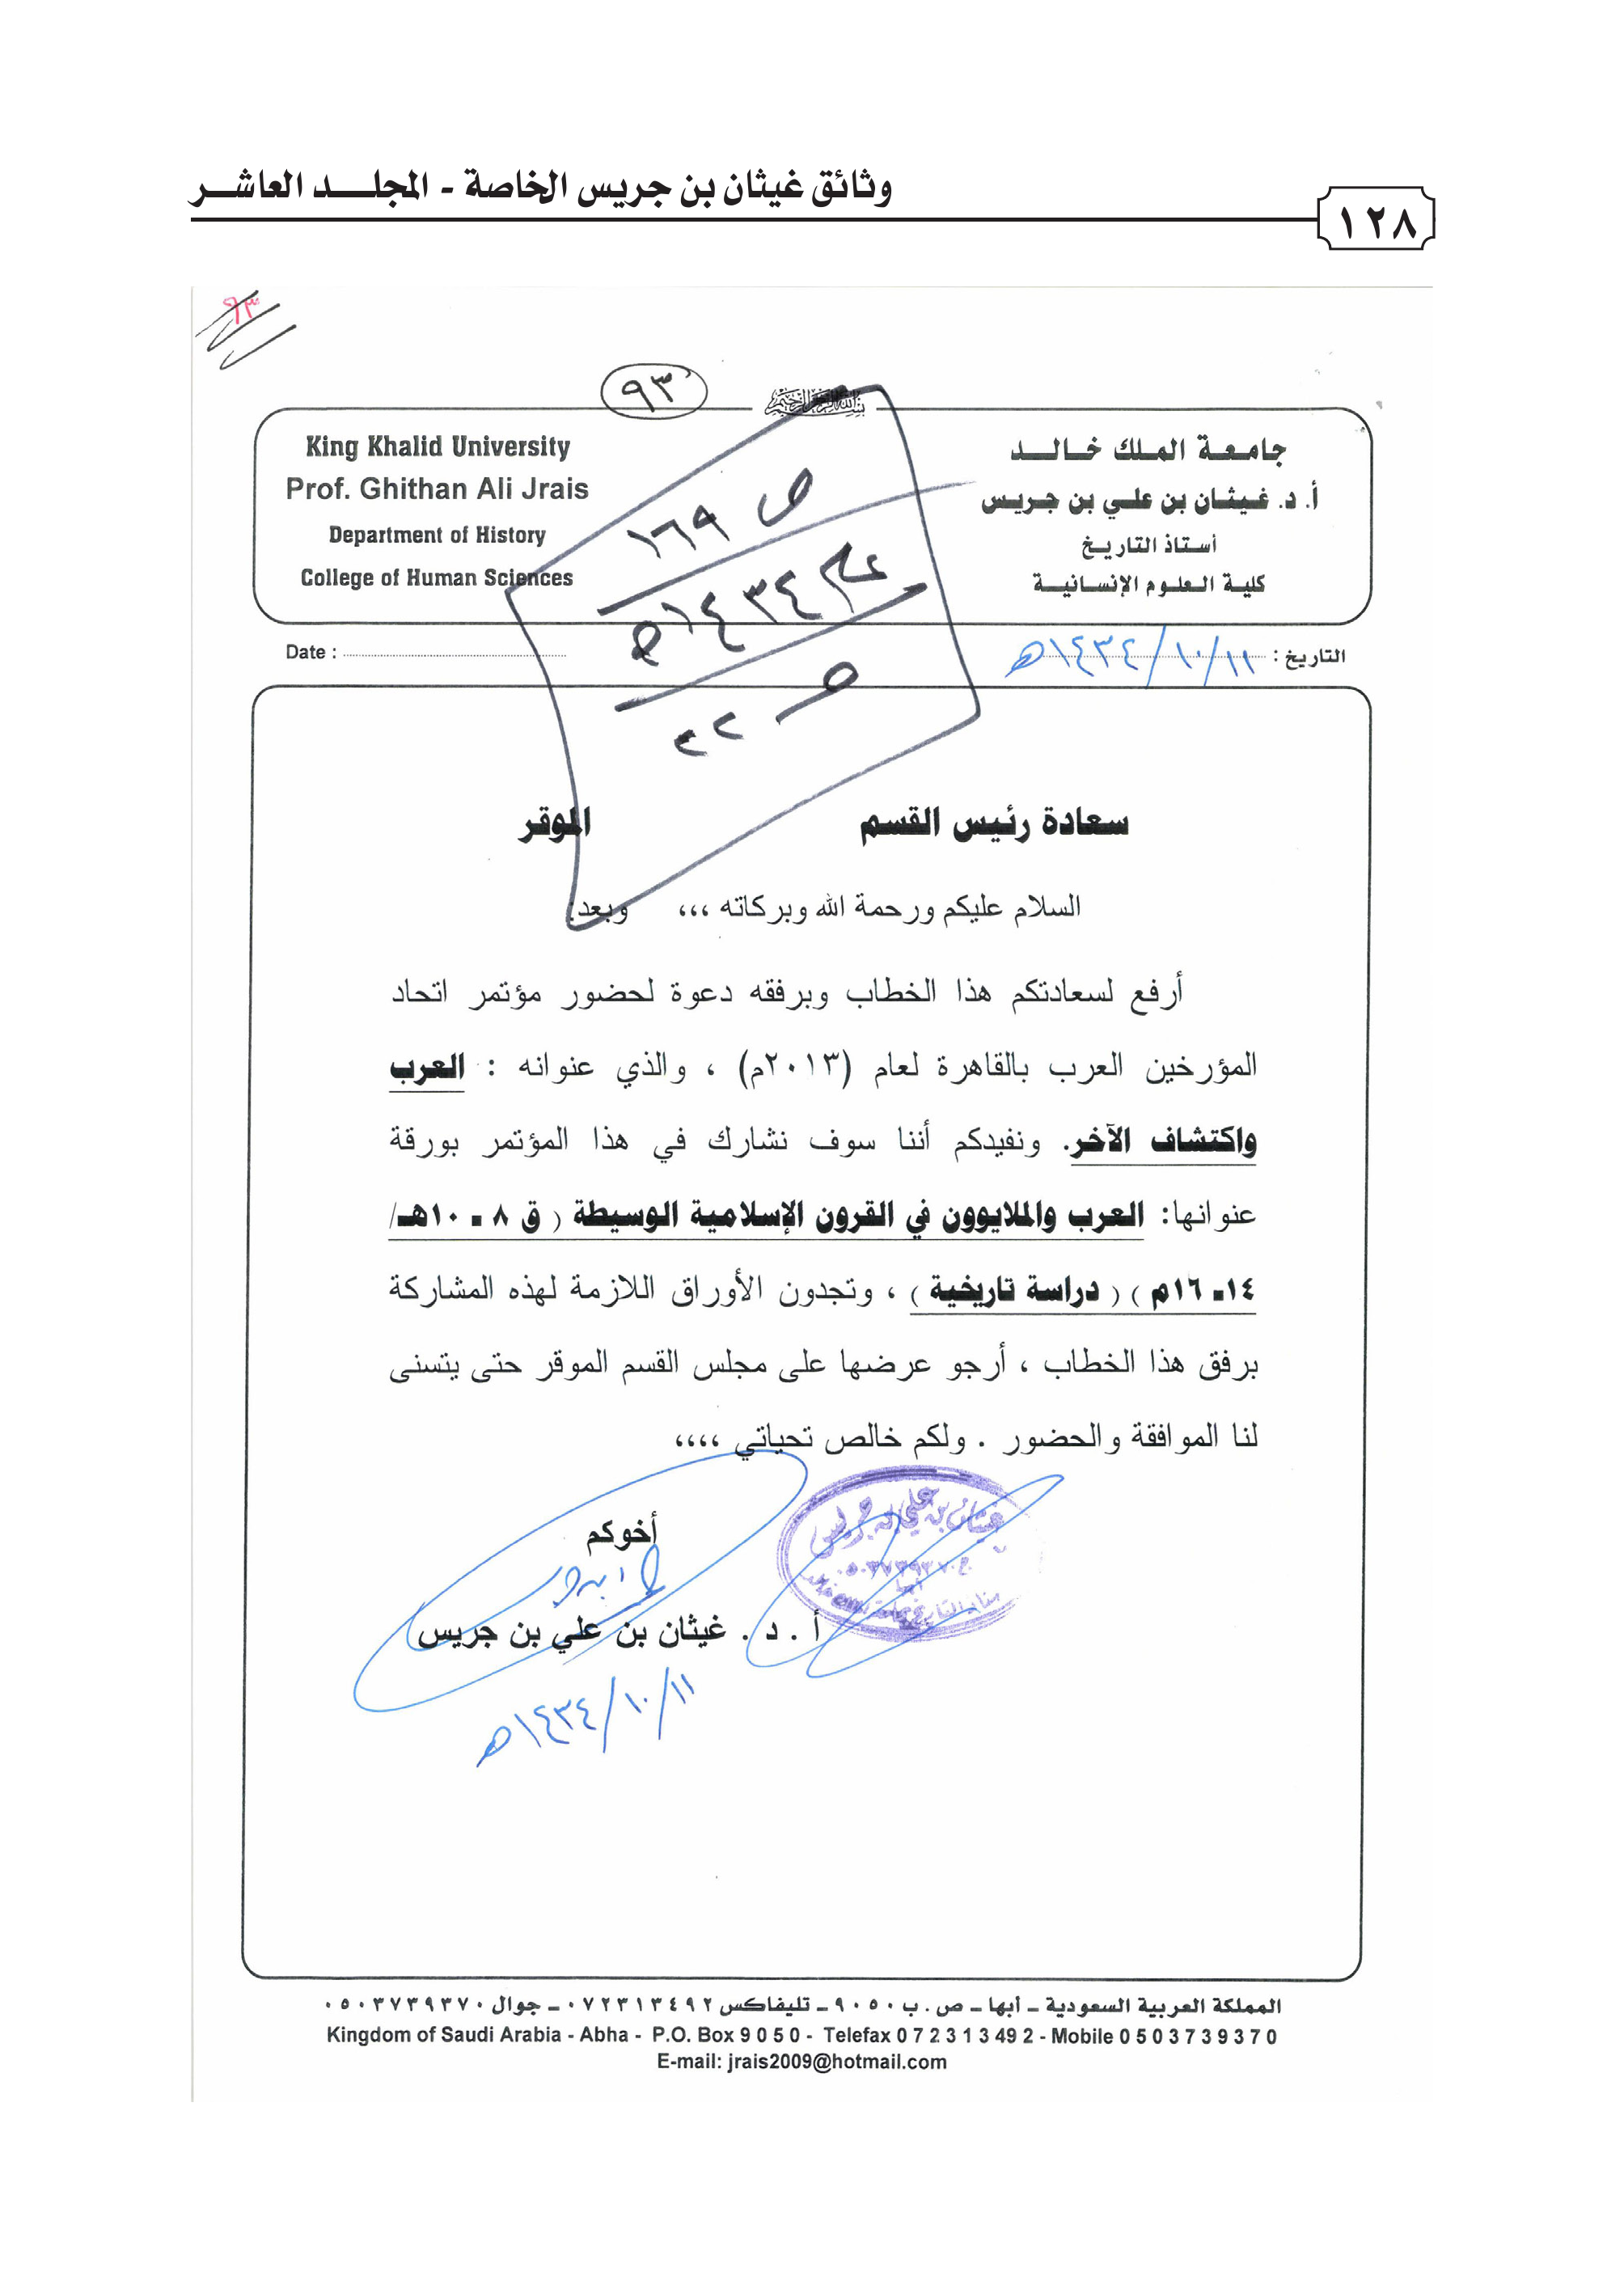 وثائق غيثان بن جريس الخاصة - المجلد العاشر
١٢٨
٩٣
٩٣
بسم الله الرحمن الرحيم
جامعة الملك خالد
أ. د. غيثان بن علي بن جريس
أستاذ التاريخ
كلية العلوم الإنسانية
King Khalid University
Prof. Ghithan Ali Jrais
Department of History
College of Human Sciences
ص ١٦٩
١٤٣٤هـ
التاريخ : ١١/ ١٠/ ١٤٣٤هـ
Date :
سعادة رئيس القسم الموقر
السلام عليكم ورحمة الله وبركاته ،،، وبعد:
أرفع لسعادتكم هذا الخطاب وبرفقه دعوة لحضور مؤتمر اتحاد
المؤرخين العرب بالقاهرة لعام (٢٠١٣م) ، والذي عنوانه : العرب
واكتشاف الآخر. ونفيدكم أننا سوف نشارك في هذا المؤتمر بورقة
عنوانها: العرب والملايوون في القرون الإسلامية الوسيطة ( ق ٨ - ١٠هـ/
١٤- ١٦م ) ( دراسة تاريخية ) ، وتجدون الأوراق اللازمة لهذه المشاركة
برفق هذا الخطاب ، أرجو عرضها على مجلس القسم الموقر حتى يتسنى
لنا الموافقة والحضور . ولكم خالص تحياتي ،،،،
أخوكم
غيثان بن علي بن جريس
ج ٠٥٠٣٧٣٩٣٧٠
أبها
أ . د . غيثان بن علي بن جريس
١١/ ١٠/ ١٤٣٤هـ
المملكة العربية السعودية – أبها – ص . ب ٩٠٥٠ – تليفاكس ٠٧٢٣١٣٤٩٢ – جوال ٠٥٠٣٧٣٩٣٧٠
Kingdom of Saudi Arabia - Abha - P.O. Box 9 0 5 0 - Telefax 0 7 2 3 1 3 49 2 - Mobile 0 5 0 3 7 3 9 3 7 0
E-mail: jrais2009@hotmail.com